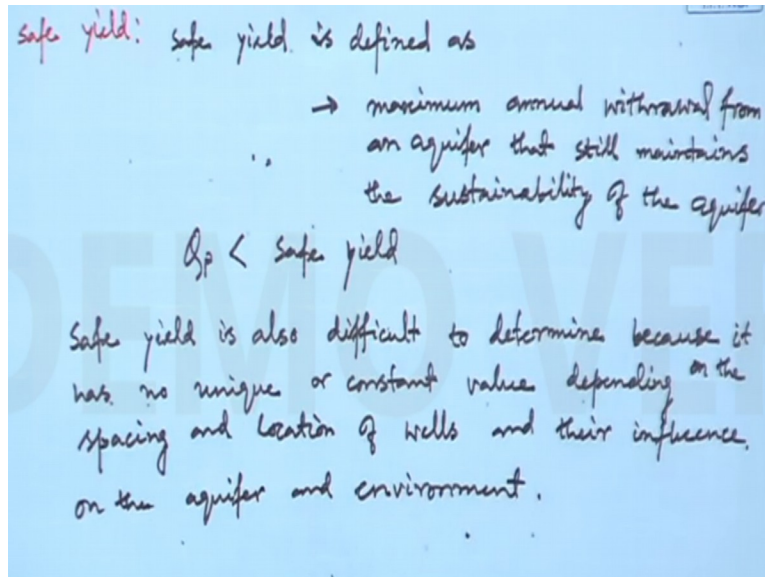 Safe yield: Safe yield is defined as
→ maximum annual withrawal from
an aquifer that still maintains
the sustainability of the aquifer
Qp < Safe yield
Safe yield is also difficult to determine because it
has no unique or constant value depending on the
spacing and location of wells and their influence
on the aquifer and environment.
DEMO VE